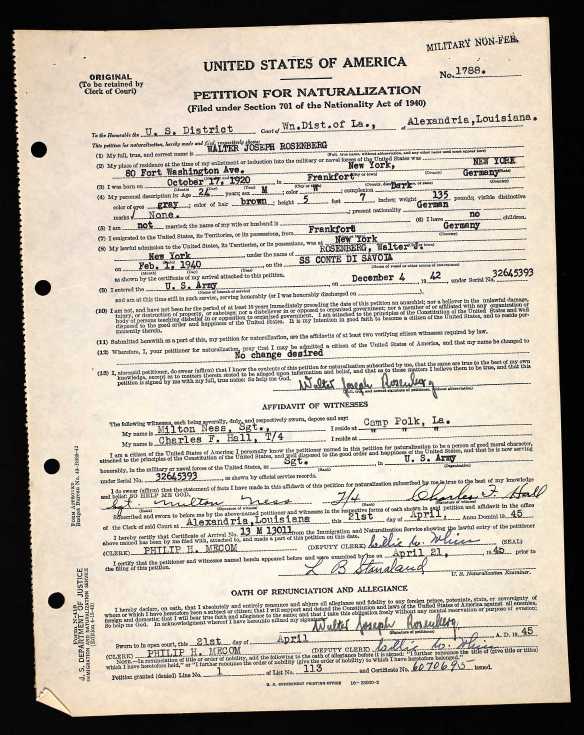 MILITARY NON-FEE.
ORIGINAL
(To be retained by
Clerk of Court)
UNITED STATES OF AMERICA
No. 1788.
PETITION FOR NATURALIZATION
(Filed under Section 701 of the Nationality Act of 1940)
To the Honorable the U. S. District Court of Wn.Dist.of La., at Alexandria,Louisiana.
This petition for naturalization, hereby made and filed, respectfully shows:
(1) My full, true, and correct name is WALTER JOSEPH ROSENBERG
(2) My place of residence at the time of my enlistment or induction into the military or naval forces of the United States was
80 Fort Washington Ave. New York, NEW YORK
(3) I was born on October 17, 1920 in Frankfort Germany
(4) My personal description is: Age 24 years; sex M; color W; complexion Dark
color of eyes gray; color of hair brown; height 5 feet 7 inches; weight 135 pounds; visible distinctive
marks None. ; present nationality German
(5) I am not married; the name of my wife or husband is (6) I have no children.
(7) I emigrated to the United States, its Territories, or its possessions, from Frankfort Germany
(8) My lawful admission to the United States, its Territories, or its possessions, was at New York
New York under the name of ROSENBERG, Walter J.
on Feb. 1, 1940 on the SS CONTE DI SAVOIA
as shown by the certificate of my arrival attached to this petition.
(9) I entered the U. S. Army on December 4, 1942 under Serial No. 32645393
and am at this time still in such service, serving honorably (or I was honorably discharged on
(10) I am not, and have not been for the period of at least 10 years immediately preceding the date of this petition an anarchist; nor a believer in the unlawful damage,
injury, or destruction of property, or sabotage; nor a disbeliever in or opposed to organized government; nor a member of or affiliated with any organization or
body of persons teaching disbelief in or opposition to organized government. I am attached to the principles of the Constitution of the United States and well
disposed to the good order and happiness of the United States. It is my intention in good faith to become a citizen of the United States, and to reside permanently therein.
(11) Submitted herewith as a part of this, my petition for naturalization, are the affidavits of at least two verifying witnesses required by law.
(12) Wherefore, I, your petitioner for naturalization, pray that I may be admitted a citizen of the United States of America, and that my name be changed to
No change desired
(13) I, aforesaid petitioner, do swear (affirm) that I know the contents of this petition for naturalization subscribed by me, that the same are true to the best of my own
knowledge, except as to matters therein stated to be alleged upon information and belief, and that as to those matters I believe them to be true, and that this
petition is signed by me with my full, true name: So help me God.
Walter Joseph Rosenberg
AFFIDAVIT OF WITNESSES
The following witnesses, each being severally, duly, and respectively sworn, depose and say:
My name is Milton Ness, Sgt., I reside at Camp Polk, La.
My name is Charles F. Hall, T/4 I reside at " " "
I am a citizen of the United States of America; I personally know the petitioner named in this petition for naturalization to be a person of good moral character,
attached to the principles of the Constitution of the United States, and well disposed to the good order and happiness of the United States, and that he is now serving
honorably, in the military or naval forces of the United States, as Sgt. in U. S. Army
under Serial No. 32645393 as shown by official service records.
I do swear (affirm) that the statements of fact I have made in this affidavit of this petition for naturalization subscribed by me is true to the best of my knowledge
and belief: SO HELP ME GOD.
Sgt. Milton Ness T/4 Charles F. Hall
Subscribed and sworn to before me by the above-named petitioner and witnesses in the respective forms of oath shown in said petition and affidavit in the office
of the Clerk of said Court at Alexandria,Louisiana this 21st day of April, Anno Domini 19 45
I hereby certify that Certificate of Arrival No. 13 M 13011 from the Immigration and Naturalization Service showing the lawful entry of the petitioner
above named has been by me filed with, attached to, and made a part of this petition on this date.
(CLERK) PHILIP H. MECOM (DEPUTY CLERK) (SEAL)
I certify that the petitioner and witnesses named herein appeared before and were examined by me on April 21, 1945 prior to
the filing of this petition.
L B Standard
U. S. Naturalization Examiner.
OATH OF RENUNCIATION AND ALLEGIANCE
I hereby declare, on oath, that I absolutely and entirely renounce and abjure all allegiance and fidelity to any foreign prince, potentate, state, or sovereignty of
whom or which I have heretofore been a subject or citizen; that I will support and defend the Constitution and laws of the United States of America against all enemies,
foreign and domestic; that I will bear true faith and allegiance to the same; and that I take this obligation freely without any mental reservation or purpose of evasion:
So help me God. In acknowledgment whereof I have hereunto affixed my signature.
Walter Joseph Rosenberg
Sworn to in open court, this 21st day of April A. D. 19 45
(CLERK) PHILIP H. MECOM (DEPUTY CLERK)
NOTE.—In renunciation of title or order of nobility, add the following to the oath of allegiance before it is signed: "I further renounce the title of (give title or titles)
which I have heretofore held," or "I further renounce the order of nobility (give the order of nobility) to which I have heretofore belonged."
Petition granted (denied) Line No. 1 of List No. 113 and Certificate No. 6070695 issued.
U. S. GOVERNMENT PRINTING OFFICE
U. S. DEPARTMENT OF JUSTICE
IMMIGRATION AND NATURALIZATION SERVICE